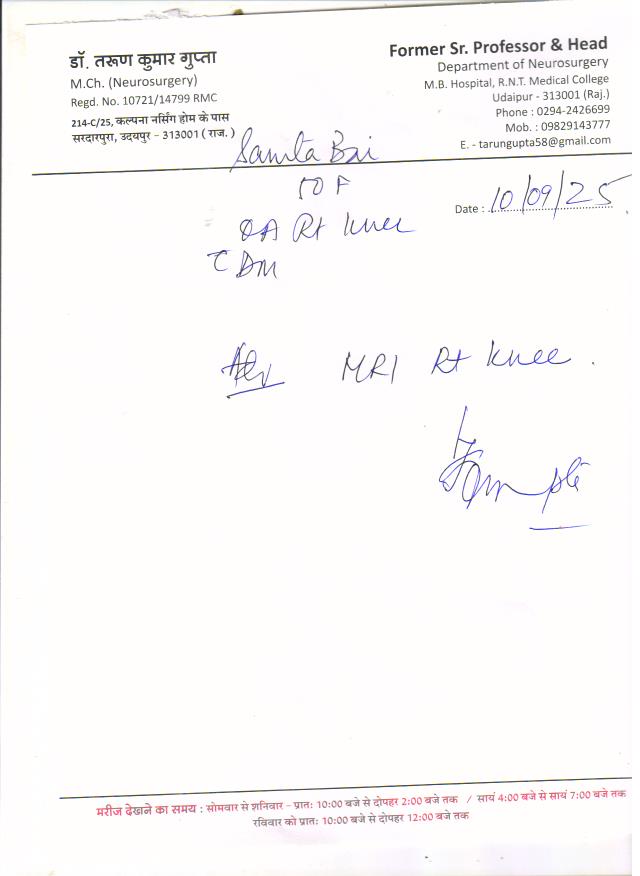 डॉ. तरूण कुमार गुप्ता
M.Ch. (Neurosurgery)
Regd. No. 10721/14799 RMC
214-C/25, कल्पना नर्सिंग होम के पास
सरदारपुरा, उदयपुर - 313001 ( राज. )
Former Sr. Professor & Head
Department of Neurosurgery
M.B. Hospital, R.N.T. Medical College
Udaipur - 313001 (Raj.)
Phone : 0294-2426699
Mob. : 09829143777
E. - tarungupta58@gmail.com
Bai
Date : 10/09/25
F
OA Rt knee
DM
Adv MRI Rt knee .
मरीज देखने का समय : सोमवार से शनिवार - प्रातः 10:00 बजे से दोपहर 2:00 बजे तक / सायं 4:00 बजे से सायं 7:00 बजे तक
रविवार को प्रातः 10:00 बजे से दोपहर 12:00 बजे तक